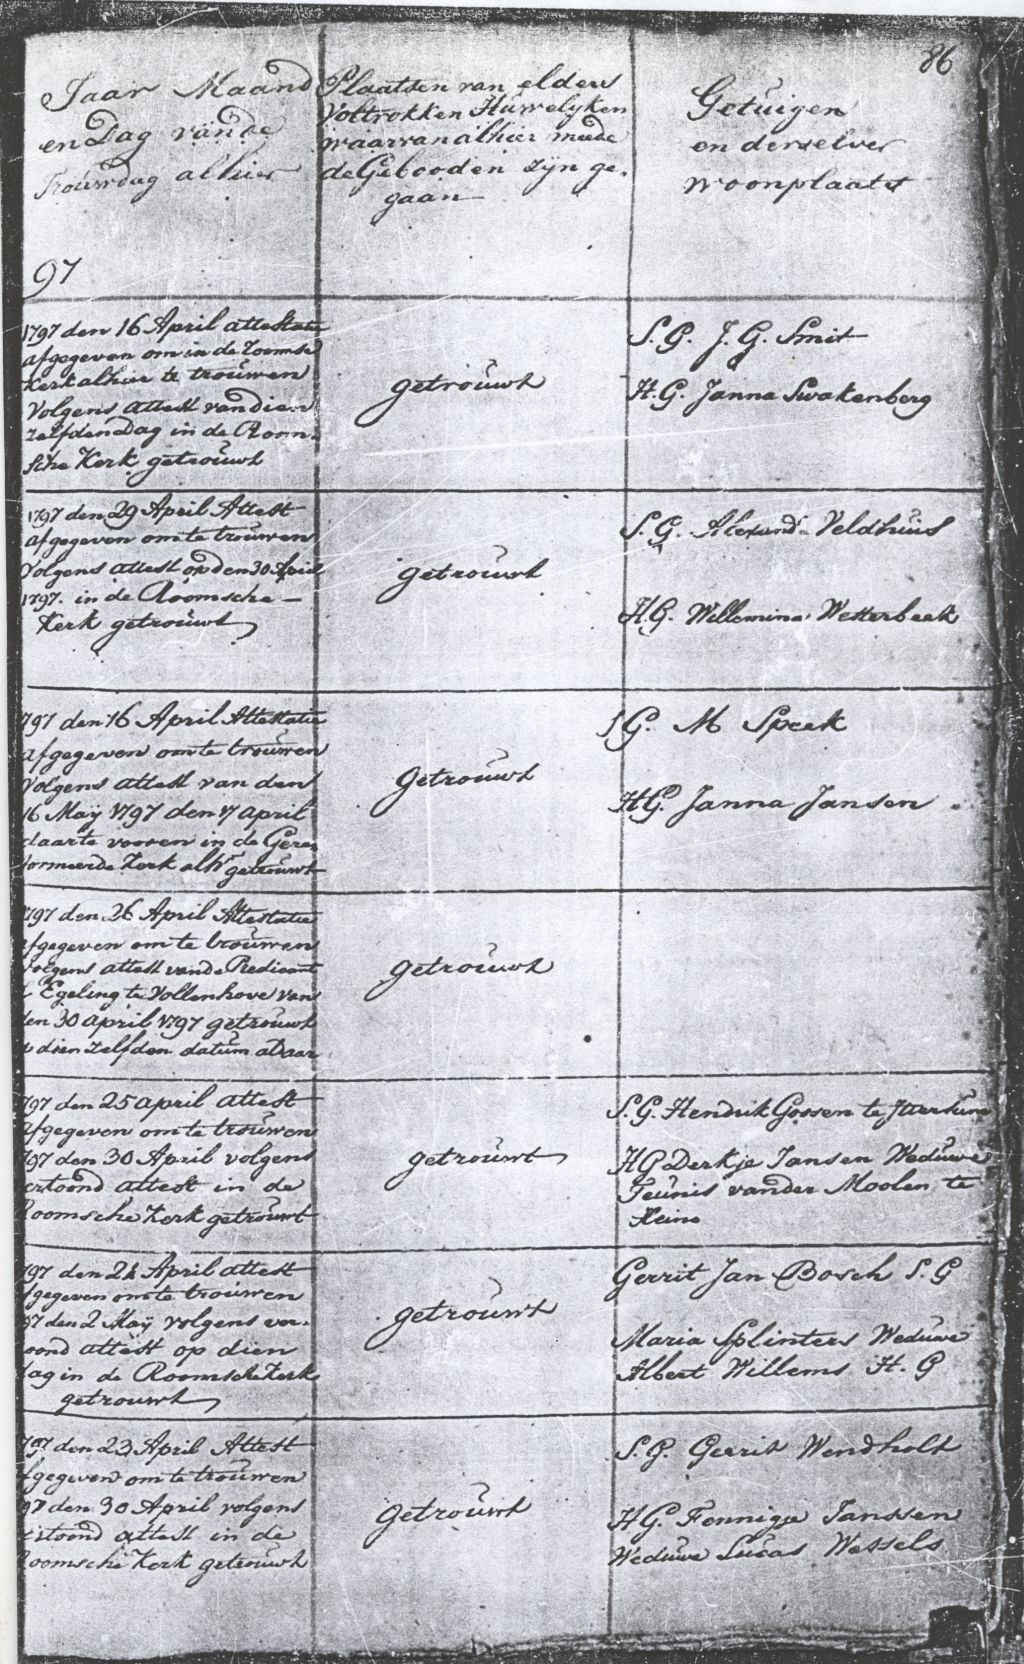 86
Jaar Maand
en Dag van de
Trouwdag alhier
97
Plaatsen van elders
Voltrokken Huwelyken
waarvan alhier meede
de Gebooden zyn ge,
gaan
Getuigen
en derselver
woonplaats
1797 den 16 April attestatie
afgegeven om in de Roomse
Kerk alhier te trouwen
Volgens attest van dien
zelfden Dag in de Room,
sche Kerk getrouwt
getrouwt
S. G. J. G. Smit
H. G. Janna Swakenberg
1797 den 29 April Attest
afgegeven om te trouwen
Volgens attest op den 30 April
1797. in de Roomsche
Kerk getrouwt
getrouwt
S. G. Alexand. Veldhuis
H. G. Willemina Westerbeek
797 den 16 April Attestatie
afgegeven om te trouwen
Volgens attest van den
16 Maÿ 1797 den 17 April
daar te vooren in de Gere,
formeerde Kerk alhr getrouwt
getrouwt
S G. M Speek
H G. Janna Jansen
797 den 26 April Attestatie
afgegeven om te trouwen
volgens attest van de Predicant
Egeling te Vollenhove van
den 30 april 1797 getrouwt
dien zelfden datum aldaar
getrouwt
797 den 25 april attest
afgegeven om te trouwen
797 den 30 April volgens
ertoond attest in de
Roomsche Kerk getrouwt
getrouwt
S. G. Hendrik Gossen te ItterSum
H G Derkje Jansen Weduwe
Teunis vander Moolen te
Heino
797 den 21 April attest
afgegeven om te trouwen
97 den 2 Maÿ volgens ver,
toond attest op dien
dag in de Roomsche Kerk
getrouwt
getrouwt
Gerrit Jan Bosch S. G
Maria Splinters Weduwe
Albert Willems H. G
797 den 23 April Attest
afgegeven om te trouwen
97 den 30 April volgens
ertoond attest in de
Roomsche Kerk getrouwt
getrouwt
S. G. Gerrit Wendholt
H G. Fennigje Janssen
Weduwe Lucas Wessels